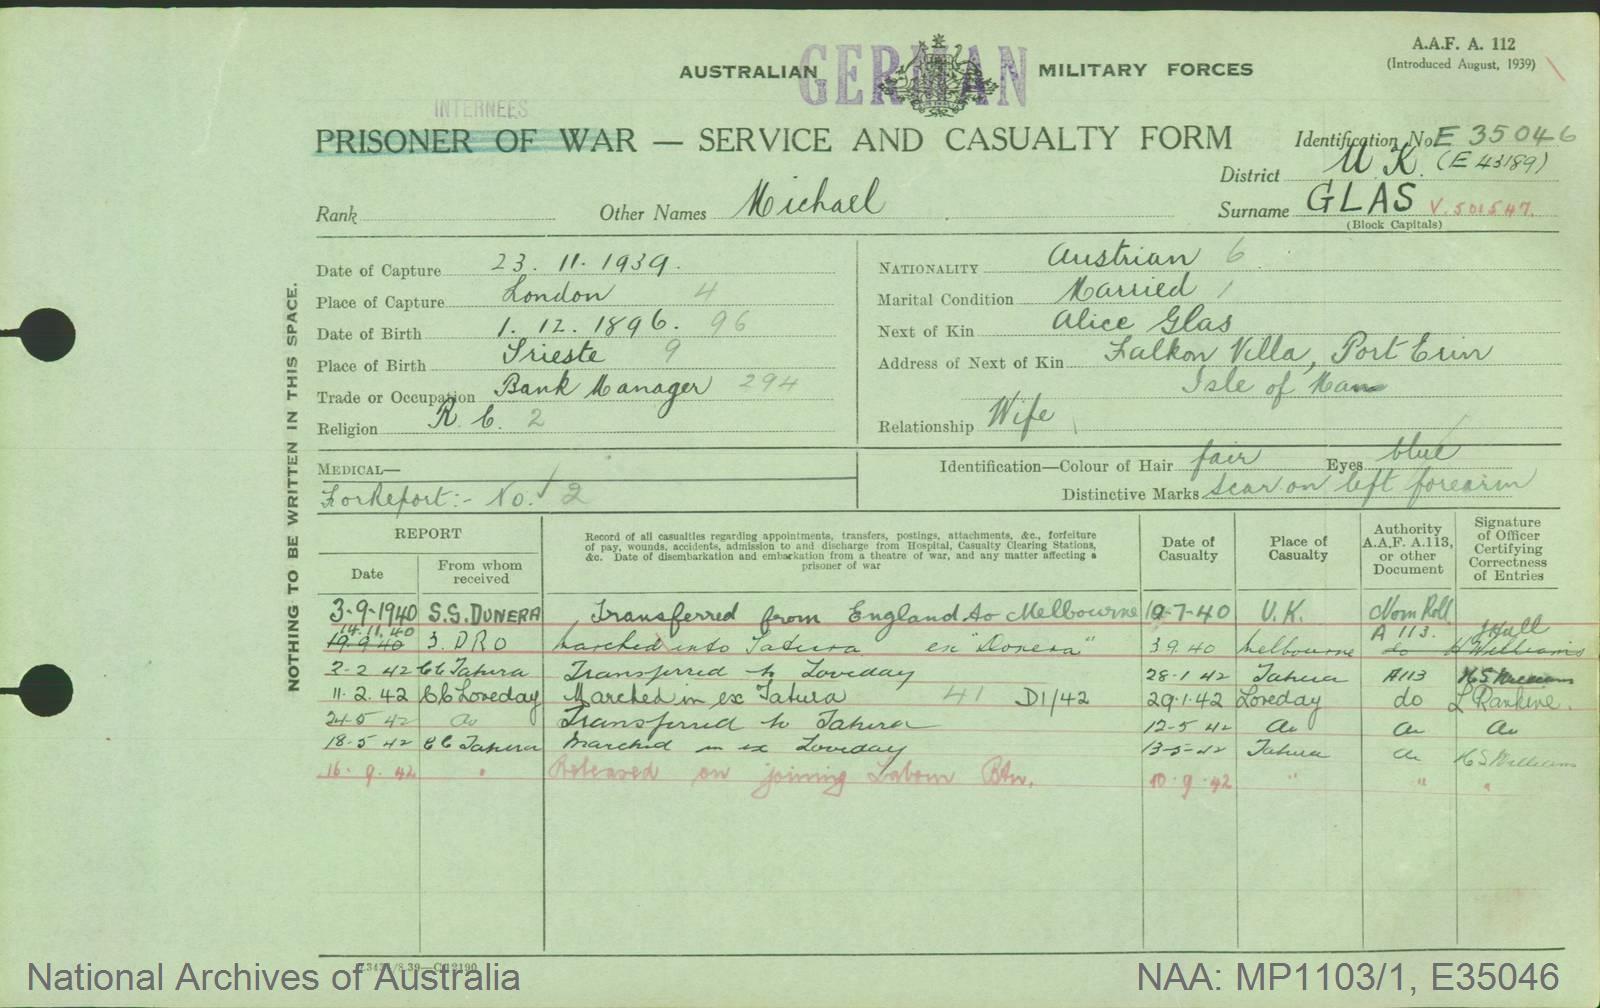 GERMAN
A.A.F. A. 112
(Introduced August, 1939)
AUSTRALIAN MILITARY FORCES
INTERNEES
PRISONER OF WAR — SERVICE AND CASUALTY FORM
Identification No. E 35046
(E 43189)
District U.K.
Rank Other Names Michael Surname GLAS V.501547.
(Block Capitals)
NOTHING TO BE WRITTEN IN THIS SPACE.
Date of Capture 23. 11. 1939.
Place of Capture London 4
Date of Birth 1. 12. 1896. 96
Place of Birth Trieste 9
Trade or Occupation Bank Manager 294
Religion R.C. 2
NATIONALITY Austrian 6
Marital Condition Married 1
Next of Kin Alice Glas
Address of Next of Kin Falkon Villa, Port Erin
Isle of Man
Relationship Wife
MEDICAL—
For Report:- No. 2
Identification—Colour of Hair fair Eyes blue
Distinctive Marks scar on left forearm
REPORT
Date
From whom received
Record of all casualties regarding appointments, transfers, postings, attachments, &c., forfeiture
of pay, wounds, accidents, admission to and discharge from Hospital, Casualty Clearing Stations,
&c. Date of disembarkation and embarkation from a theatre of war, and any matter affecting a
prisoner of war
Date of Casualty
Place of Casualty
Authority A.A.F. A.113, or other Document
Signature of Officer Certifying Correctness of Entries
3-9-1940 S.S. DUNERA Transferred from England to Melbourne 10-7-40 U.K. Nom Roll
14.11.40
19.9.40 3. DRO Marched into Tatura ex "Dunera" 3 9 40 Melbourne A 113. do JHull HSWilliams
2-2 42 CC Tatura Transferred to Loveday 28-1 42 Tatura A113 HSWilliams
11.2.42 CC Loveday Marched in ex Tatura 41 D1/42 29.1.42 Loveday do L Rankine.
24-5 42 do Transferred to Tatura 12-5 42 do do do
18-5 42 CC Tatura Marched in ex Loveday 13-5-42 Tatura do HSWilliams
16. 9. 42 " Released on joining Labour Btn. 10.9.42 " " "
National Archives of Australia
NAA: MP1103/1, E35046